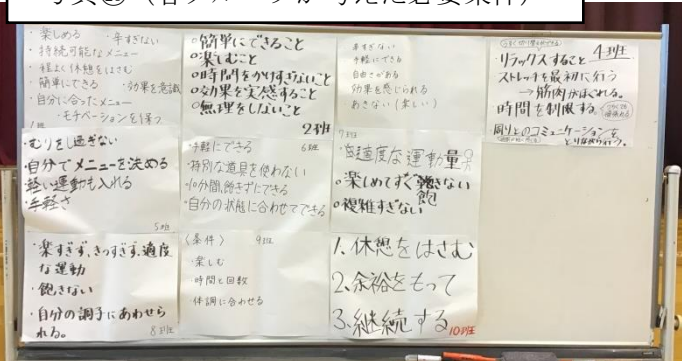 ・楽しめる ・辛すぎない
・持続可能なメニュー
・程よく休憩をはさむ
・簡単にできる ・効果を意識
・自分に合ったメニュー
・モチベーションを保つ
1班
○簡単にできること
○楽しむこと
○時間をかけすぎないこと
○効果を実感すること
○無理をしないこと
2班
辛すぎない
手軽にできる
自由さがある
効果を感じられる
あきない(楽しい)
・リラックスすること 4班
ストレッチを最初に行う
→筋肉がほぐれる。
・時間を制限する。
周りとのコミュニケーションを
とりながら行う。
・むりをし過ぎない
・自分でメニューを決める
・軽い運動も入れる
・手軽さ
5班
・手軽にできる 6班
・特別な道具を使わない
・10分間、飽きずにできる
・自分の状態に合わせてできる
7班
適度な運動量
○楽しめてすぐ飽きない
飽
○複雑すぎない
・楽すぎず、きつすぎず、適度
な運動
・飽きない
・自分の調子にあわせら
れる。
8班
〈条件〉 9班
・楽しむ
・時間と回数
・体調に合わせる
1.休憩をはさむ
2.余裕をもって
3.継続する 10班